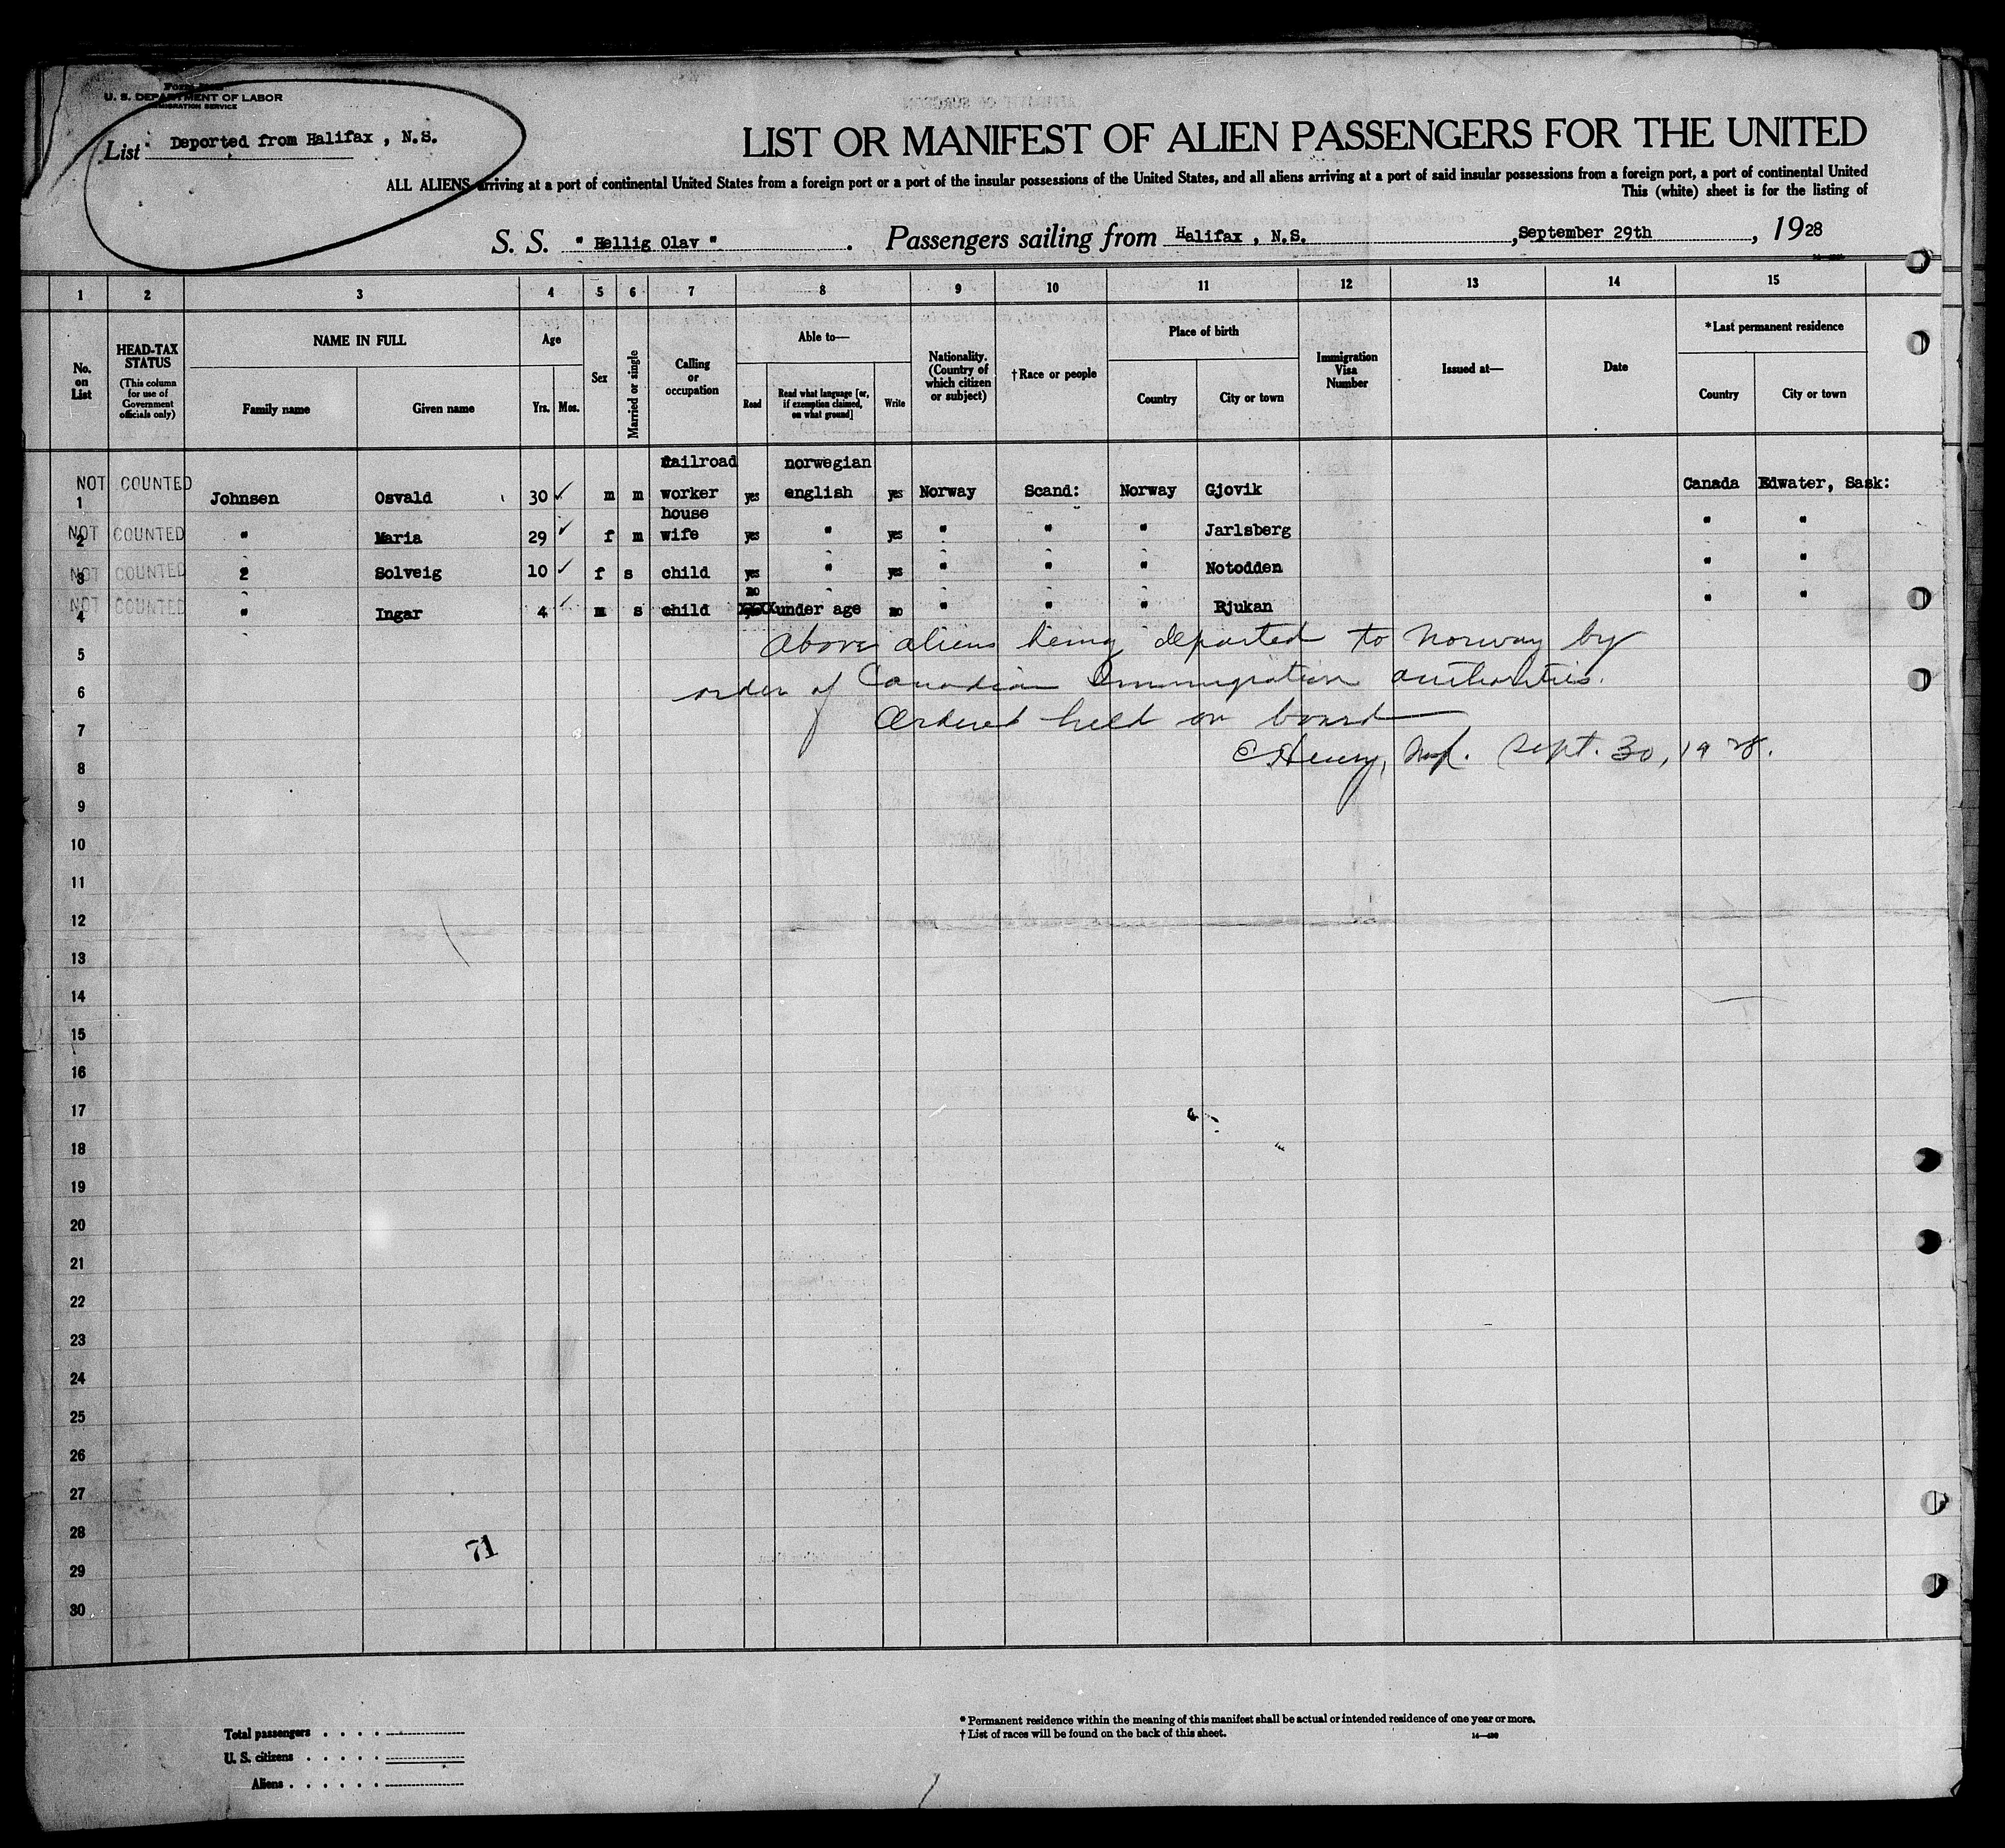 U. S. DEPARTMENT OF LABOR
IMMIGRATION SERVICE
List Deported from Halifax , N.S.
LIST OR MANIFEST OF ALIEN PASSENGERS FOR THE UNITED
ALL ALIENS arriving at a port of continental United States from a foreign port or a port of the insular possessions of the United States, and all aliens arriving at a port of said insular possessions from a foreign port, a port of continental United
This (white) sheet is for the listing of
S. S. " Hellig Olav " . Passengers sailing from Halifax , N.S. , September 29th , 1928
1 2 3 4 5 6 7 8 9 10 11 12 13 14 15
No. on List
HEAD-TAX STATUS (This column for use of Government officials only)
NAME IN FULL
Family name Given name
Age
Yrs. Mos.
Sex
Married or single
Calling or occupation
Able to—
Read Read what language [or, if exemption claimed, on what ground] Write
Nationality. (Country of which citizen or subject)
†Race or people
Place of birth
Country City or town
Immigration Visa Number
Issued at—
Date
*Last permanent residence
Country City or town
railroad norwegian
NOT COUNTED
1 Johnsen Osvald 30 ✓ m m worker yes english yes Norway Scand: Norway Gjovik Canada Edwater, Sask:
house
NOT COUNTED
2 " Maria 29 ✓ f m wife yes " yes " " " Jarlsberg " "
NOT COUNTED
3 2 Solveig 10 ✓ f s child yes " yes " " " Notodden " "
no
NOT COUNTED
4 " Ingar 4 ✓ m s child XXXX under age no " " " Rjukan " "
above aliens being deported to Norway by
order of Canadian Immigration authorities.
Ordered held on board
E Henry, Insp. Sept. 30, 1928.
5
6
7
8
9
10
11
12
13
14
15
16
17
18
19
20
21
22
23
24
25
26
27
28
29
30
71
Total passengers . . . .
U. S. citizens . . . . .
Aliens . . . . . .
* Permanent residence within the meaning of this manifest shall be actual or intended residence of one year or more.
† List of races will be found on the back of this sheet.